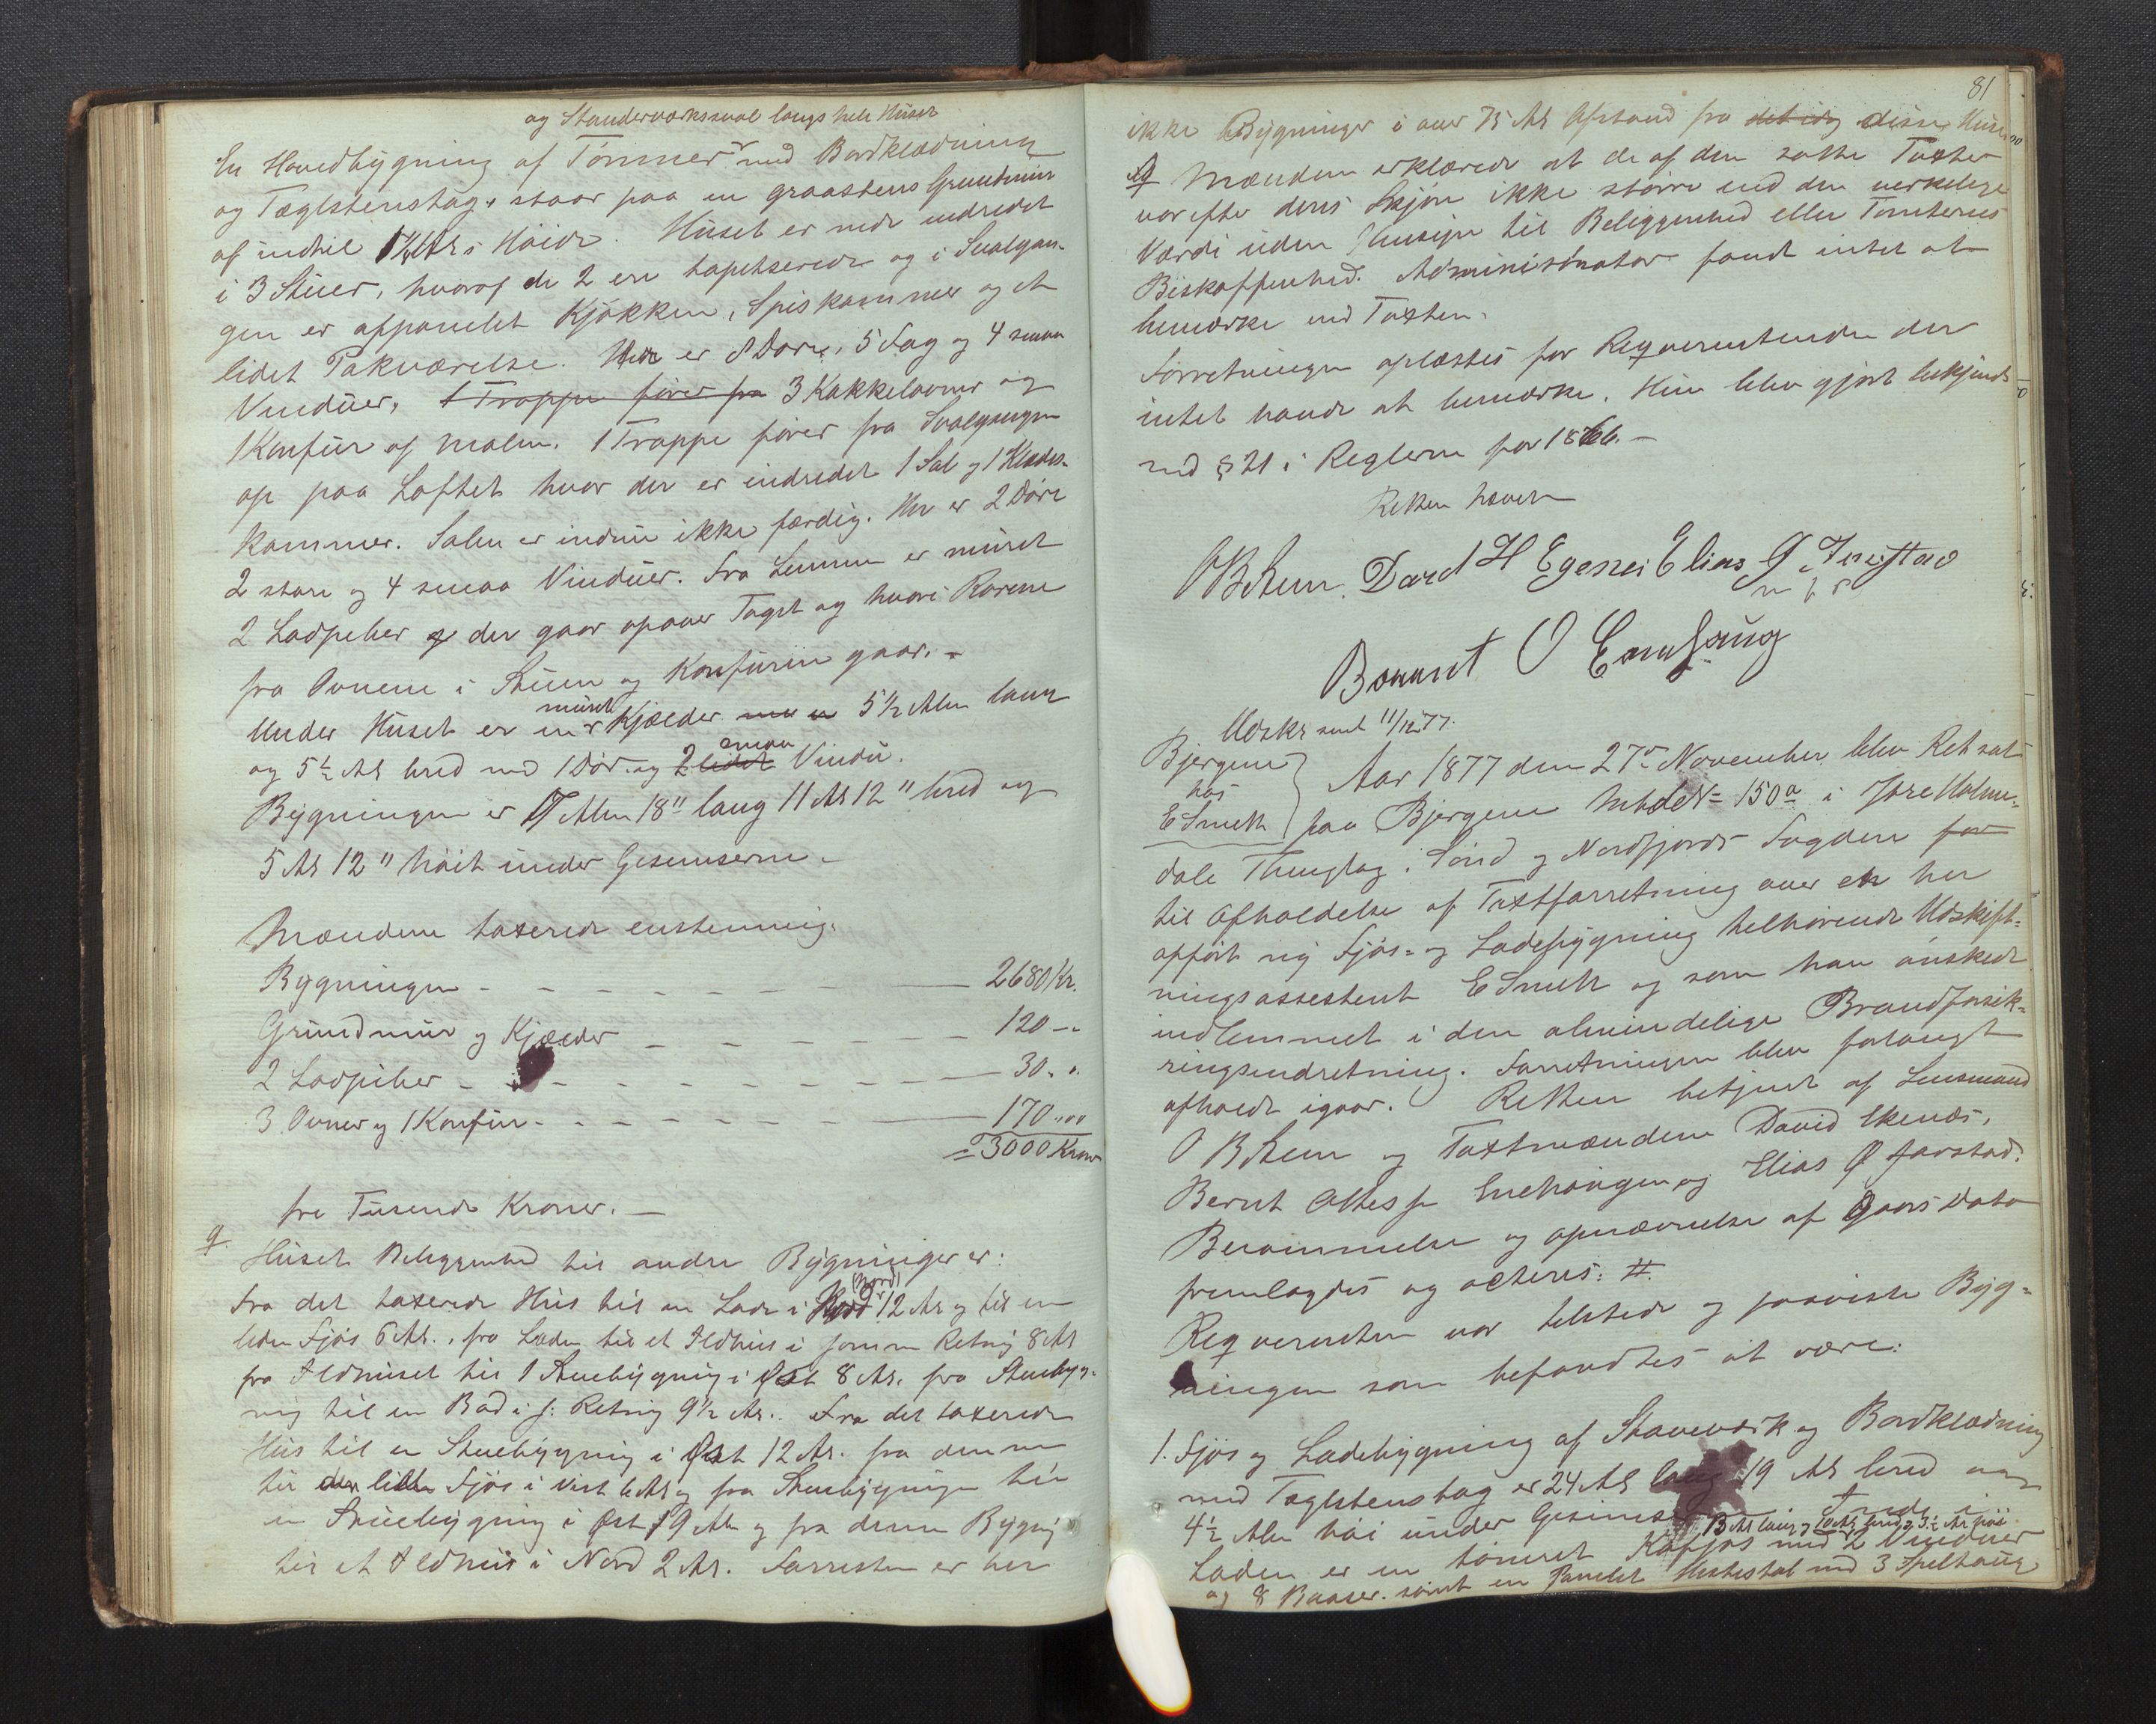 og Standerværkssval langs hele Huset
En Hovedbygning af Tømmer med Bordklædning
og Taglstenstag, staar paa en graastens Grundmur
af indtil 1½ Al. i Høide. Huset er nede indredet
i 3 Stuer, hvoraf de 2 ere tapetserede og i Svalgan-
gen er afpanelet Kjøkken, Spiskammer og et
lidet Takværelse. Her er 8 Døre, 5 Fag og 4 smaa
Vinduer, 1 Trappe fører fra 3 Kakkelovner og
1 Komfur af Malm. 1 Trappe fører fra Svalgangen
op paa Loftet hvor der er indredet 1 Sal og 1 Klædes-
kammer. Salen er endnu ikke færdig. Her er 2 Døre
2 store og 4 smaa Vinduer. Fra Lemmen er muret
2 Ladpiber og der gaar opover Taget og hvori Rørene
fra Ovnene i Stuen og Komfuren gaar. -
muret
Under Huset er en Kjælder 5½ Alen lang
smaa
og 5½ Al. bred med 1 Dør og 2 lidet Vindu.
Bygningen er 17 Alen 18" lang 11 Al. 12" bred og
5 Al. 12" høit under Gesimserne. -
Mændene taxerede enstemmig:
Bygningen - - - - - - - 2680 Kr.
Grundmur og Kjælder - - - - - - 120 - "
2 Ladpiber - - - - - - - 30 - "
3 Ovner og 1 Komfur - - - - - - 170 "00
= 3000 Kroner
tre Tusende Kroner. -
g. Husets Beliggenhed til andre Bygninger er:
(Nord)
Fra det taxerede Hus til en Lade i Nord 12 Al. og til en
liden Fjøs 6 Al., fra Laden til et Ildhus i samme Retning 8 Al.
fra Ildhuset til 1 Stuebygning i Øst 8 Al. fra Stuebyg-
ning til en Bod i s: Retning 9½ Al. Fra det taxerede
Hus til en Stuebygning i Øst 12 Al. fra denne
til den lille Fjøs i Vest 6 Al. og fra Stuebygningen til
en Stuebygning i Øst 19 Alen og fra denne Bygning
til et Ildhus i Nord 2 Al. Forresten er her
81
ikke Bygninger i over 75 Al. Afstand fra det idag disse Huse
Mændene erklærede at de af dem satte Taxter
var efter deres Skjøn ikke større end den verkelige
Værdi uden Hensyn til Beliggenhed eller Tomternes
Beskaffenhed. Administrator fandt intet at
bemærke ved Taxten.
Forretningen oplæstes for Reqverentinden der
intet havde at bemærke. Hun blev gjort bekjendt
med § 21 i Reglerne for 1866. -
Retten hævet
O B Aem. David H Egenes Elias Ø Jarstad
m p s
Bernt O Enehaug
Udskr sendt 11/12 77.
Bjergene
hos
E Smith
Aar 1877 den 27de November blev Ret sat
paa Bjergene Matr: No 150a i Ytre Holme-
dals Thinglag i Sønd og Nordfjords Fogderi for
til Afholdelse af Taxtforretning over en her
opført ny Fjøs- og Ladebygning tilhørende Udskift-
ningsassestent E Smith og som han ønskede
indlemmet i den almindelige Brandforsik-
ringsindretning. Forretningen blev forlangt
afholdt igaar. Retten betjent af Lensmand
O B Aem og Taxtmændene David Ekenæs,
Bernt Olsen Enehaugen og Elias Ø Jarstad.
Berammelse og opnævnelse af Gaars Dato
fremlagdes og acteres: #.
Reqverenten var tilstede og paaviste Byg-
ningen som befandtes at være:
1. Fjøs og Ladebygning af Staveværk og Bordklædning
med Taglstenstag er 24 Al. lang 19 Al. bred og
4½ Alen høi under Gesimsen. Inde i
13 Al. lang og 10 Al. bred og 3½ Al. høi
Laden er en tømret Kofjøs med 2 Vinduer
og 8 Baaser. samt en Panelet Hestestal med 3 Spiltaug